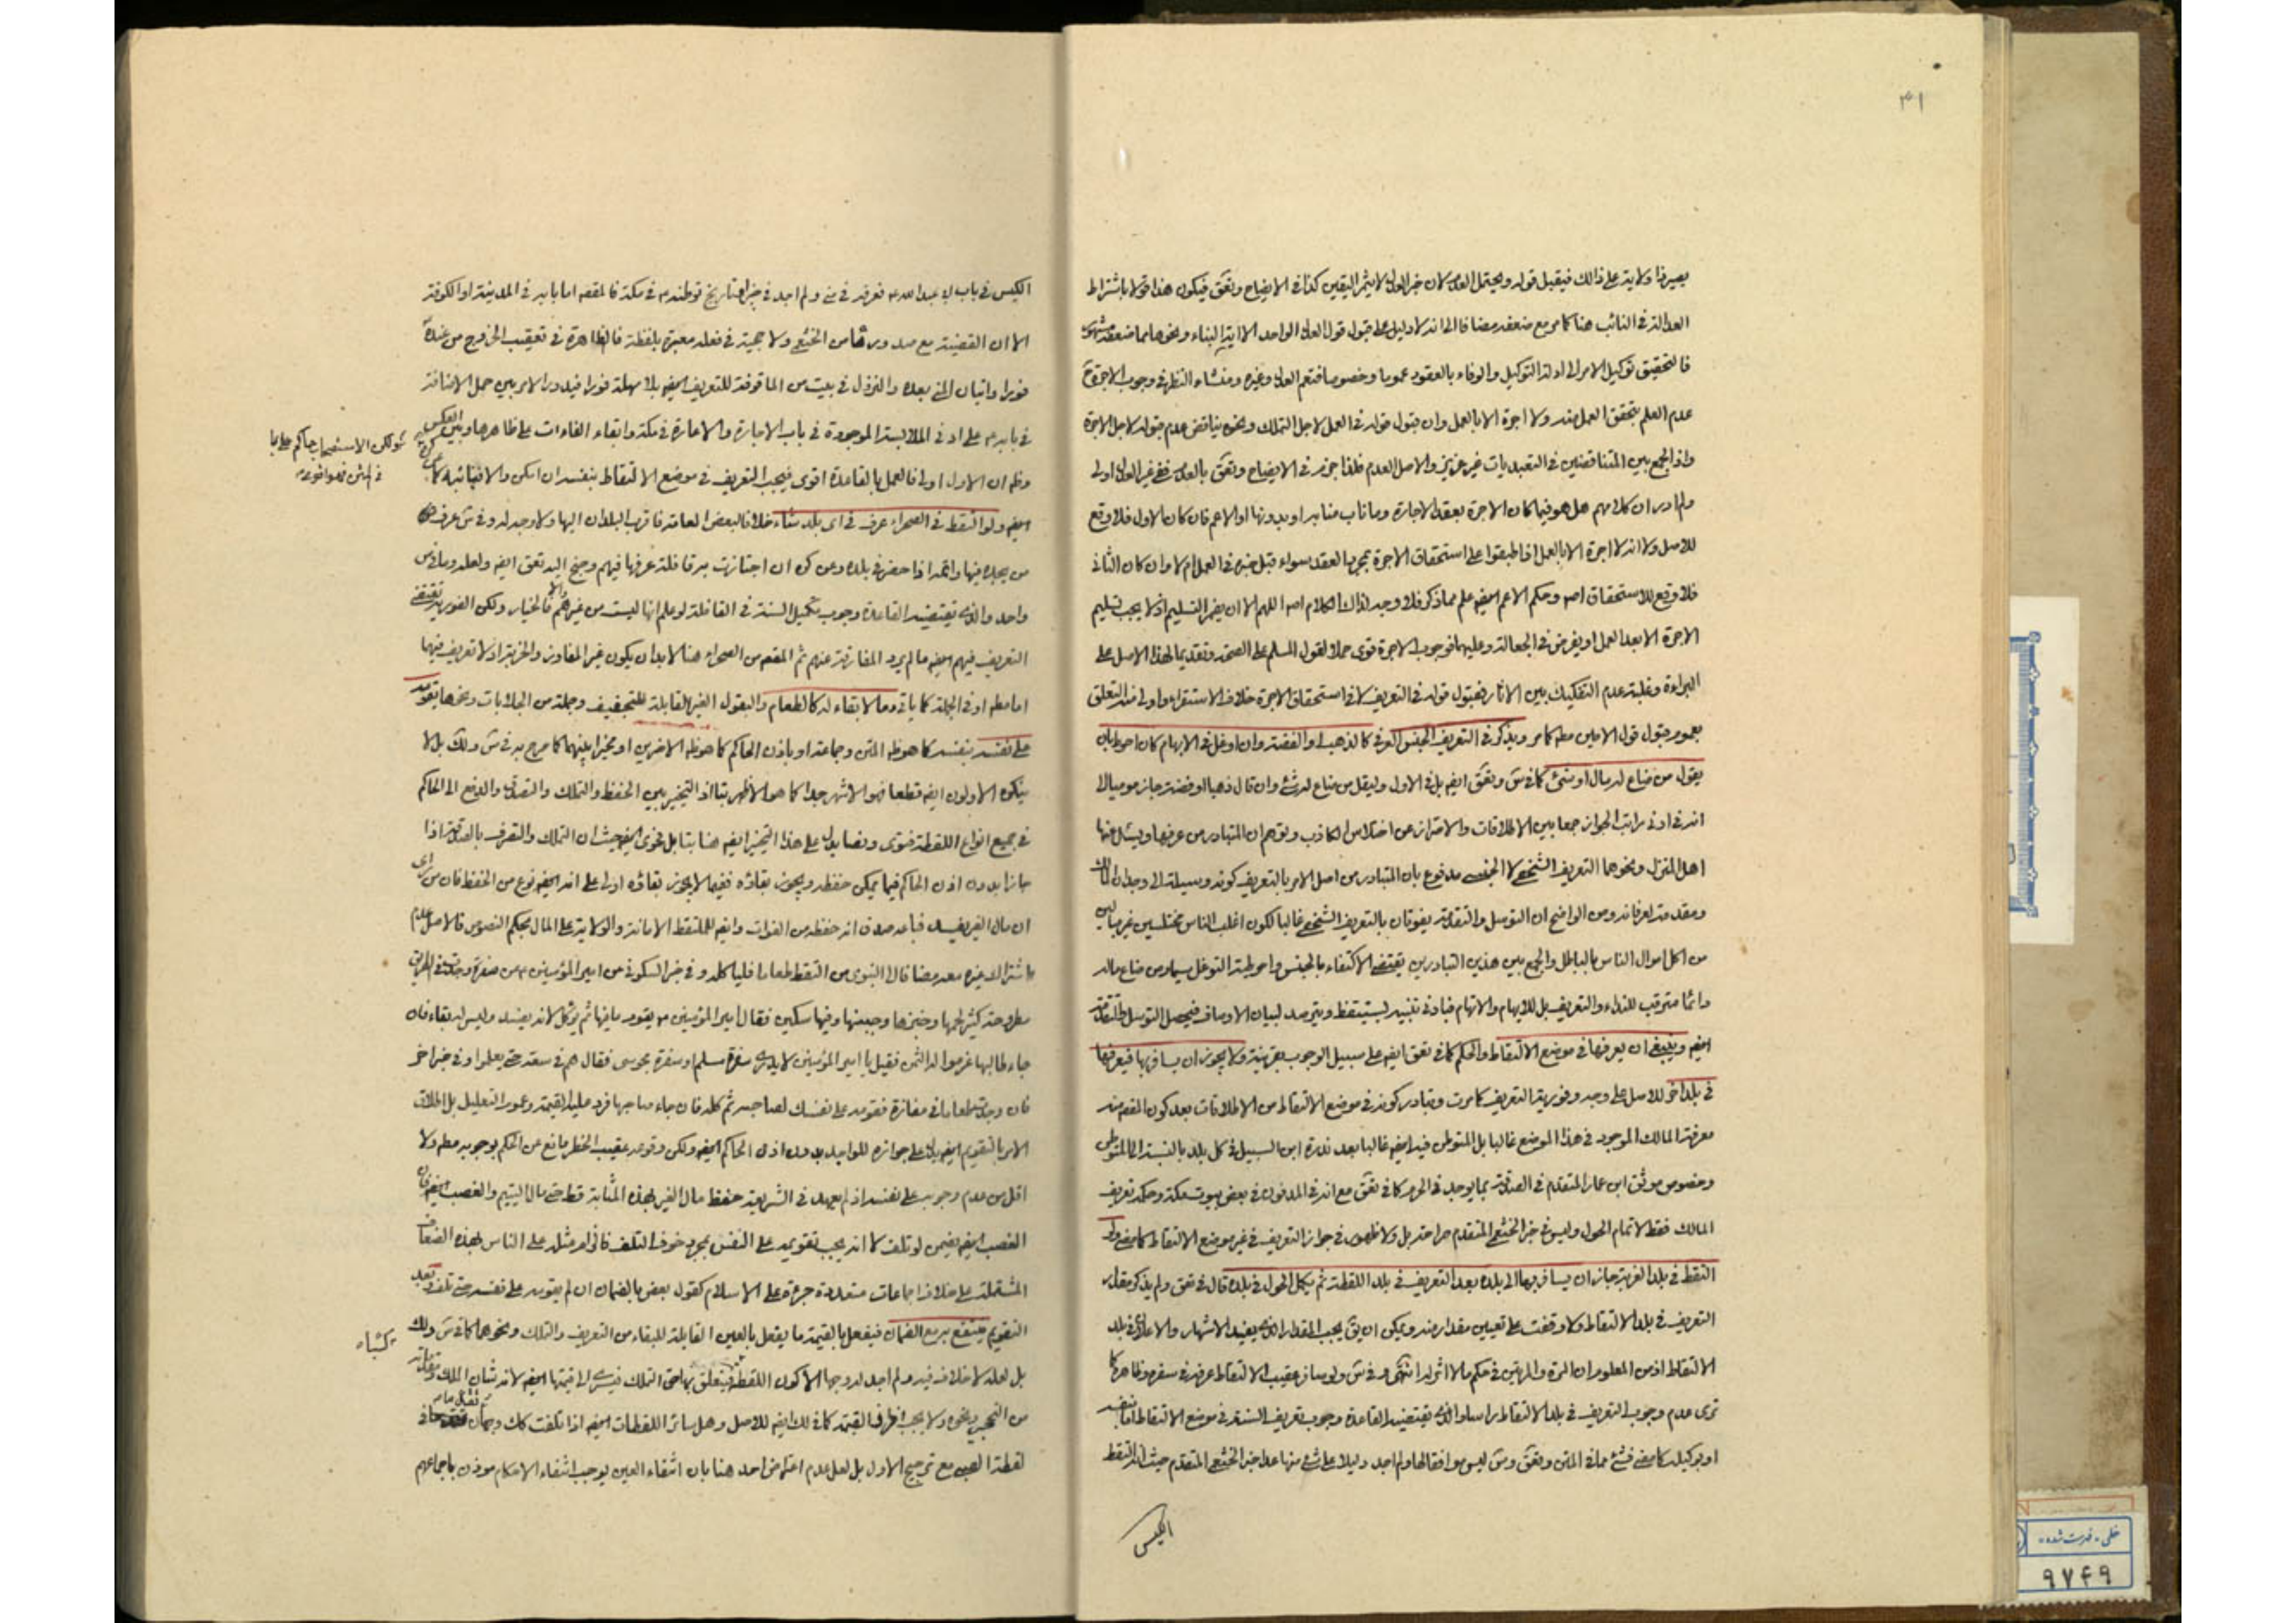 ٣١
بصيرفا ولاية على ذالك فيقبل قوله ويحتمل العدم لان خبر العدل لا يثمر اليقين كذا في الايضاح وتعق فيكون هذا قولا باشتراط
العدالة في النائب هنا كما مر مع ضعفه مضافا الى انه لا دليل على قبول قول العدل الواحد الا اية النباء ونحوها مما ضعفه
فالتحقيق توكيل الامر الى ادلة التوكيل والوفاء بالعقود عموما وخصوصا فتعم العدل وغيره ومنشاء النظر في وجوب الاجرة
عدم العلم بتحقق العمل منه ولا اجرة الا بالعمل وان قبول قوله في العمل لاجل التملك ونحوه يناقض عدم قبوله لاجل الاجرة
واذ الجمع بين المتناقضين في التعبديات غير عزيز والاصل العدم فلذا جزم في الايضاح وتعق بالعدم ففي غير العدل اولى
ولم ادر ان كلامهم هل هو فيما كان الاجرة بعقد الاجارة وما ناب منابه او بدونها او الاعم فان كان الاول فلا وقع
للاصل ولا انه لا اجرة الا بالعمل اذ اطبقوا على استحقاق الاجرة بمجرد العقد سواء قبل خبره في العمل ام لا وان كان الثاني
فلا وقع للاستحقاق اصلا وحكم الاعم ايضا علم مما ذكر فلا وجه لذاك الكلام اصلا اللهم الا ان يضر التسليم اذ لا يجب تسليم
الاجرة الا بعد العمل او يفرض في الجعالة وعليهما فوجوب الاجرة قوى حملا لقول المسلم على الصحة وتقديما لهذا الاصل على
البراءة وغلبة عدم التفكيك بين الاثار فقبول قوله في التعريف لا في استحقاق الاجرة خلاف الاستقراء واولى منه التعلق
بعموم قبول قول الامين مطلقا كما مر ويذكر في التعريف الجنس العرفي كالذهب او الفضة وان اوغل في الابهام كان احوط بان
يقول من ضاع له مال او شئ كما في ش وتعق ايضا بل في الاول وليقل من ضاع له شئ وان قال ذهبا او فضة جاز موميا الى
انه في ادنى مراتب الجواز جمعا بين الاطلاقات والاحتراز عن اختلاس الكاذب وتوهم ان المتبادر من عرفها ويسئل عنها
اهل المنزل ونحوهما التعريف الشخصي لا الجنسي مدفوع بان المتبادر من اصل الامر بالتعريف كونه وسيلة الى وجدان المالك
ومقدمة لعرفانه ومن الواضح ان التوسل والتقدمة يفوتان بالتعريف الشخصي غالبا لكون اغلب الناس مختلسين غير مبالين
من اكل اموال الناس بالباطل والجمع بين هذين التبادرين يقتضى الاكتفاء بالجنس واحوطية التوغل سيما ومن ضاع ماله
دائما مترقب للنداء والتعريف بل للايهام والاتهام فبادنى تنبيه يستيقظ ويترصد لبيان الاوصاف فيحصل التوسل والتقدمة
ايضا وينبغي ان يعرفها في موضع الالتقاط والحكم كما في تعق ايضا على سبيل الوجوب بقرينة ولا يجوز ان يسافر بها فيعرفها
في بلد اخر للاصل على وجه وفورية التعريف كما مرت وتبادر كونه في موضع الالتقاط من الاطلاقات بعد كون المقصد منه
معرفة المالك الموجود في هذا الموضع غالبا بل المتوطن فيه ايضا غالبا بعد ندرة ابن السبيل في كل بلد بالنسبة الى المتوطن
وخصوص موثق ابن عمار المتقدم في الصدقة بما يوجد في الحرم كما في تعق مع انه في المدفون في بعض بيوت مكة وحكمه تعريف
المالك فقط لا تمام الحول وليس في خبر الخثعمي المتقدم صراحة بل ولا ظهور في جواز التعريف في غير موضع الالتقاط كما مضى ولو
التقط في بلد الغربة جاز ان يسافر بها الى بلده بعد التعريف في بلد اللقطة ثم يكمل الحول في بلده قال في تعق ولم يذكر مقدار
التعريف في بلد الالتقاط ولا وقفت على تعيين مقدار منه ويمكن ان يق يجب المقدار الذي يفيد الاشهار والاعلان في بلد
الالتقاط اذ من المعلوم ان المرة والمرتين في حكم ما لا اثر له انتهى وفي ش ولو سافر عقيب الالتقاط عرفه في سفره وظاهره كما
ترى عدم وجوب التعريف في بلد الالتقاط راسا والذي يقتضيه القاعدة وجوب تعريف السنة في موضع الالتقاط اما بنفسه
او بوكيله كما مضى فشئ مما في المتن وتعق وش ليس موافقا لها ولم اجد دليلا على شئ منها عدا خبر الخثعمي المتقدم حيث انه التقط
الكيس
الكيس في باب ابي عبد الله ع فعرفه في منى ولم اجد في خبر او تاريخ توطنه ع في مكة فالمقصد اما بابه في المدينة او الكوفة
الا ان القضية مع صدورها من الخثعمي ولا حجية في فعله معبرة بلفظة فا الظاهرة في تعقيب الخروج من عنده
فورا واتيان المنى بعده والنزول في بيت من الماقوفة للتعريف ايضا بلا مهلة فورا فيدور الامر بين حمل الاضافة
في بابه ع على ادنى الملابسة الموجودة في باب الاجارة والاعارة في مكة وابقاء الفاءات على ظاهرها وبين العكس
ولكن الاستصحاب حاكم على ما
في المتن فهو اقوى
وظ ان الاول اولى فالعمل بالقاعدة اقوى فيجب التعريف في موضع الالتقاط بنفسه ان امكن والا فبنائبه كما
ايضا ولو التقط في الصحراء عرف في اى بلد شاء خلافا لبعض العامة فاقرب البلدان اليها ولا وجه له وفي ش عرف
من يجده فيها واتمه اذا حضر في بلده وعن كره ان اجتازت به قافلة عرفها فيهم وجنح اليه تعق ايضا ولعله وما في ش
واحد والذي يقتضيه القاعدة وجوب تكميل السنة في القافلة لو علم انها ليست من غيرهم والا فالخيار ولكن الفورية تقتضى
التعريف فيهم ايضا ما لم يرد المفارقة عنهم ثم المقصد من الصحراء هنا لا بد ان يكون غير المفاوز والخربة اذ لا تعريف فيها
اما مطلقا او في الجملة كما ياتي وما لا بقاء له كالطعام والبقول الغير القابلة للتجفيف وجملة من الجلابات ونحوها يقومه
على نفسه بنفسه كما هو ظ المتن وجماعة او باذن الحاكم كما هو ظ الاخرين او مخيرا بينهما كما صرح به في ش وتلك بل لا
ينكره الاولون ايضا قطعا فهو الاشهر جدا كما هو الاظهر بتا اذ التخيير بين الحفظ والتملك والتصدق والدفع الى الحاكم
في جميع انواع اللقطة فتوى ونصا يدل على هذا التخيير ايضا هنا بتا بل فحوى ايضا حيث ان التملك والتصرف بالصدقة اذا
جازا بدون اذن الحاكم فيما يمكن حفظه ويجوز بقاؤه ففيما لا يجوز بقاؤه اولى على انه ايضا نوع من الحفظ فان من راى
ان مال الغير يفسد فباعه صدق انه حفظه من الفوات وايضا للملتقط الامانة والولاية على المال بحكم النصوص فالاصل عدم
اشتراك غيره معه مضافا الى النبوى من التقط طعاما فلياكله وفي خبر السكوني عن امير المؤمنين ع من سفرة وجدت في الطريق
مطروحة كثير لحمها وخبزها وجبنها وفيها سكين فقال امير المؤمنين ع يقوم ما فيها ثم يوكل لانه يفسد وليس له بقاء فان
جاء طالبها غرموا له الثمن فقيل يا امير المؤمنين لا يدرى سفرة مسلم او سفرة مجوسى فقال هم في سعة حتى يعلموا وفي خبر اخر
فان وجدت طعاما في مفازة فقومه على نفسك لصاحبه ثم كله فان جاء صاحبها فرد عليه القيمة وعموم التعليل بل اطلاق
الامر بالتقويم ايضا يدل على جوازه للواجد بدون اذن الحاكم ايضا ولكن وقوعه عقيب الحظر مانع عن الحكم بوجوبه مطلقا ولا
اقل من عدم وجوبه على نفسه اذ لم يعهد في الشريعة حفظ مال الغير بهذه المثابة قط حتى مال اليتيم والغصب ايضا فان
الغصب ايضا يضمن لو تلف لا انه يجب تقويمه على النفس بمجرد خوف التلف فالزام مثله على الناس بهذه الضعاف
المشتملة على خلاف اجماعات متعددة جرءة على الاسلام كقول بعض بالضمان ان لم يقومه على نفسه حتى تلف وبعد
التقويم ينتفع به مع الضمان فيفعل بالقيمة ما يفعل بالعين القابلة للبقاء من التعريف والتملك ونحوهما كما في ش وتلك
بل لعله لا خلاف فيه ولم اجد له وجها الا كون اللقطة فيتعلق بها حق التملك فيسرى الى قيمتها ايضا لانه شان الملك
من التحجير ونحوه ولا يجب افراز القيمة كما في تلك ايضا للاصل وهل سائر اللقطات ايضا اذا تلفت كك وجهان
لقطة الصبي مع ترجيح الاول بل لعل عدم اعتراض احد هنا بان انتفاء العين يوجب انتفاء الاحكام موذن باجماعهم
خطى - فهرست شده
٩٧٤٩